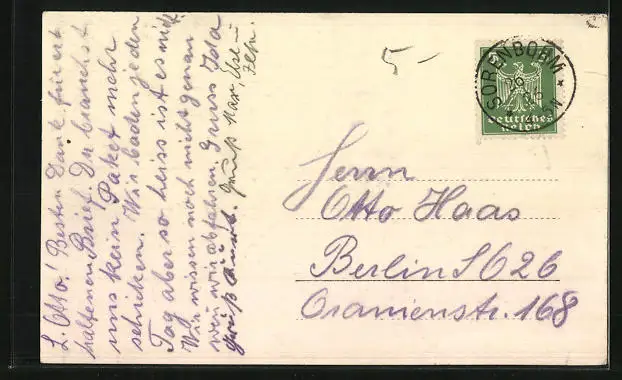 L. Otto! Besten Dank für erhaltenen Brief. Du brauchst
uns kein Paket mehr
schicken. Wir baden jeden
Tag aber so heiss ist es nicht
Wir wissen noch nicht genau
wen wir abfahren Gruss Ida
Gruß Gruß Max, Ilse u
5-
SORENBOHM
Deutsches
Reich
Herrn
Otto Haas
Berlin S 026
Oranienstr. 168